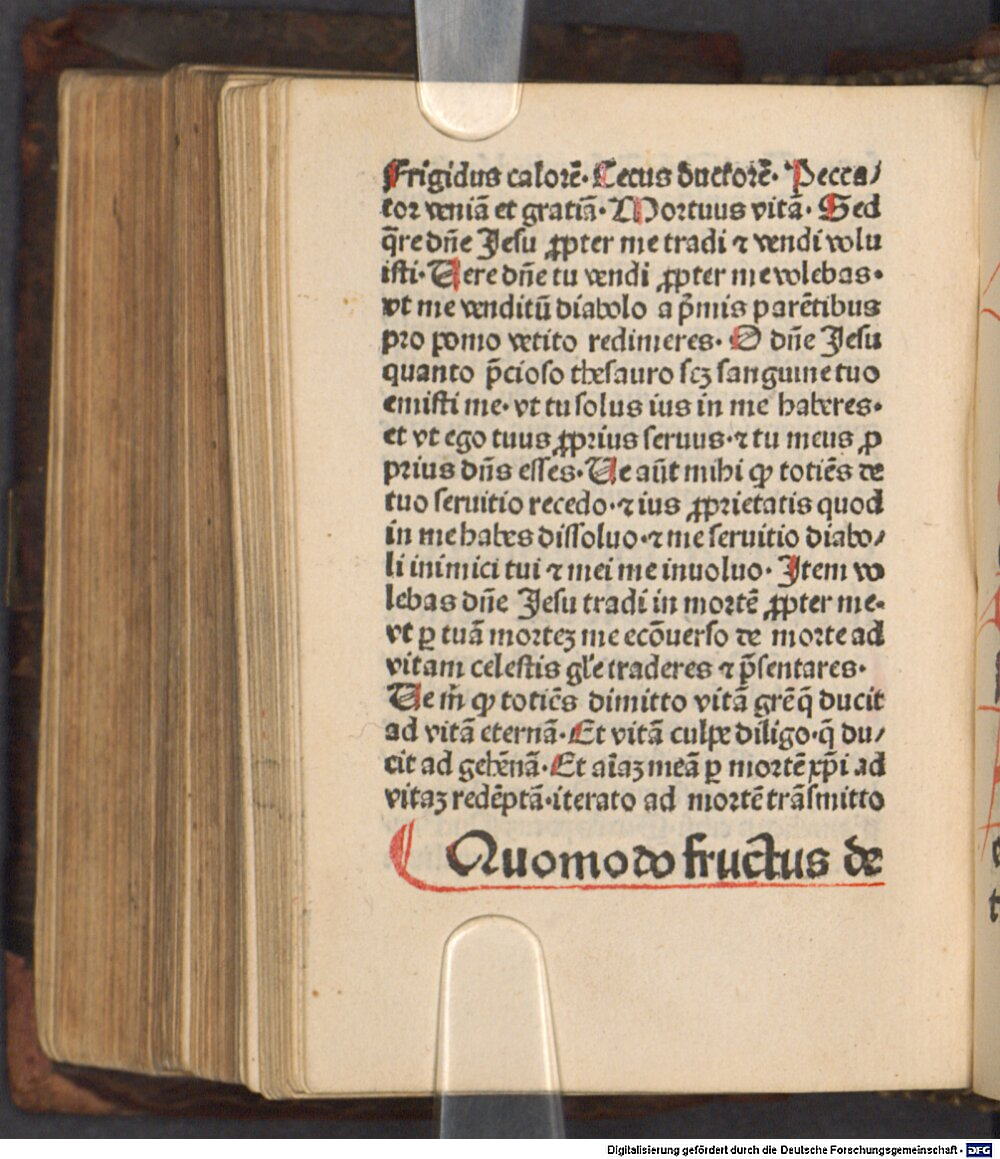 Frigidus calorē. Cecus ductorē. Pecca/
tor veniā et gratiā. Mortuus vitā. Sed
q̄re dn̄e Jesu ꝓpter me tradi ⁊ vendi volu
isti. Vere dn̄e tu vendi ꝓpter me volebas.
vt me venditū diabolo a p̄mis parētibus
pro pomo vetito redimeres. O dn̄e Jesu
quanto p̄cioso thesauro scꝫ sanguine tuo
emisti me. vt tu solus ius in me haberes.
et vt ego tuus ꝓprius seruus. ⁊ tu meus ꝓ
prius dn̄s esses. Ve aūt mihi ꝙ totiēs de
tuo seruitio recedo. ⁊ ius ꝓprietatis quod
in me habes dissoluo. ⁊ me seruitio diabo/
li inimici tui ⁊ mei me inuoluo. Item vo
lebas dn̄e Jesu tradi in mortē ꝓpter me.
vt ꝑ tuā morteꝫ me ecōuerso de morte ad
vitam celestis gl'e traderes ⁊ p̄sentares.
Ve m̄ ꝙ totiēs dimitto vitā grē q̄ ducit
ad vitā eternā. Et vitā culpe diligo. q̄ du/
cit ad gehēnā. Et aīaꝫ meā ꝑ mortē xp̄i ad
vitaꝫ redēptā. iterato ad mortē trāsmitto
Quomodo fructus de
Digitalisierung gefördert durch die Deutsche Forschungsgemeinschaft - DFG